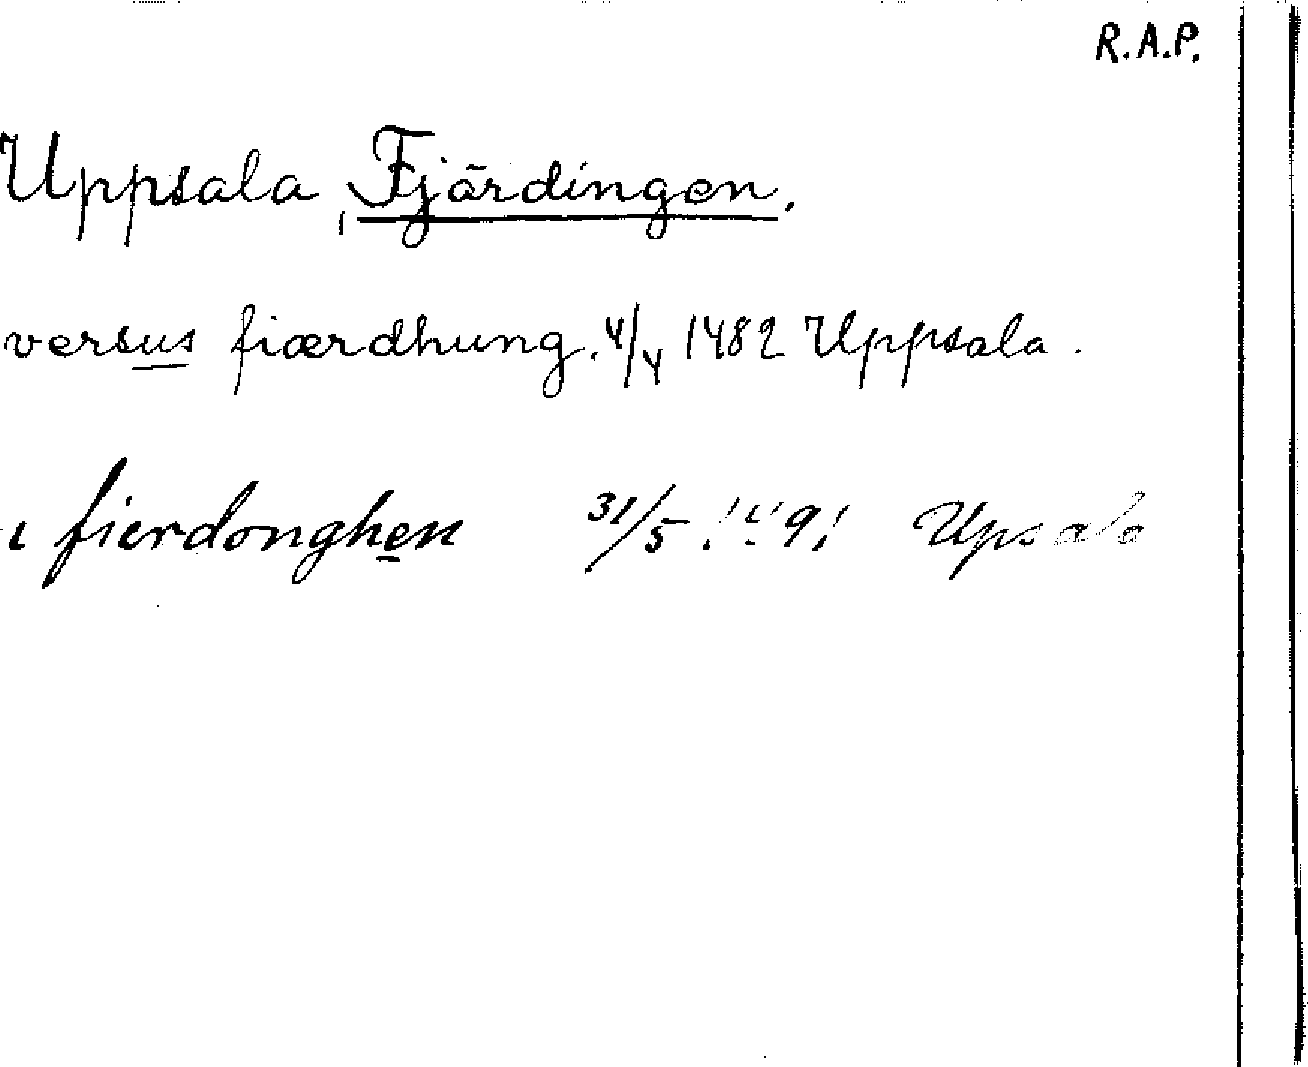 R.A.P.
Uppsala, Fjärdingen.
versus fiærdhung. 4/4 1482 Uppsala.
i fierdonghen 31/5 1491 Upsala